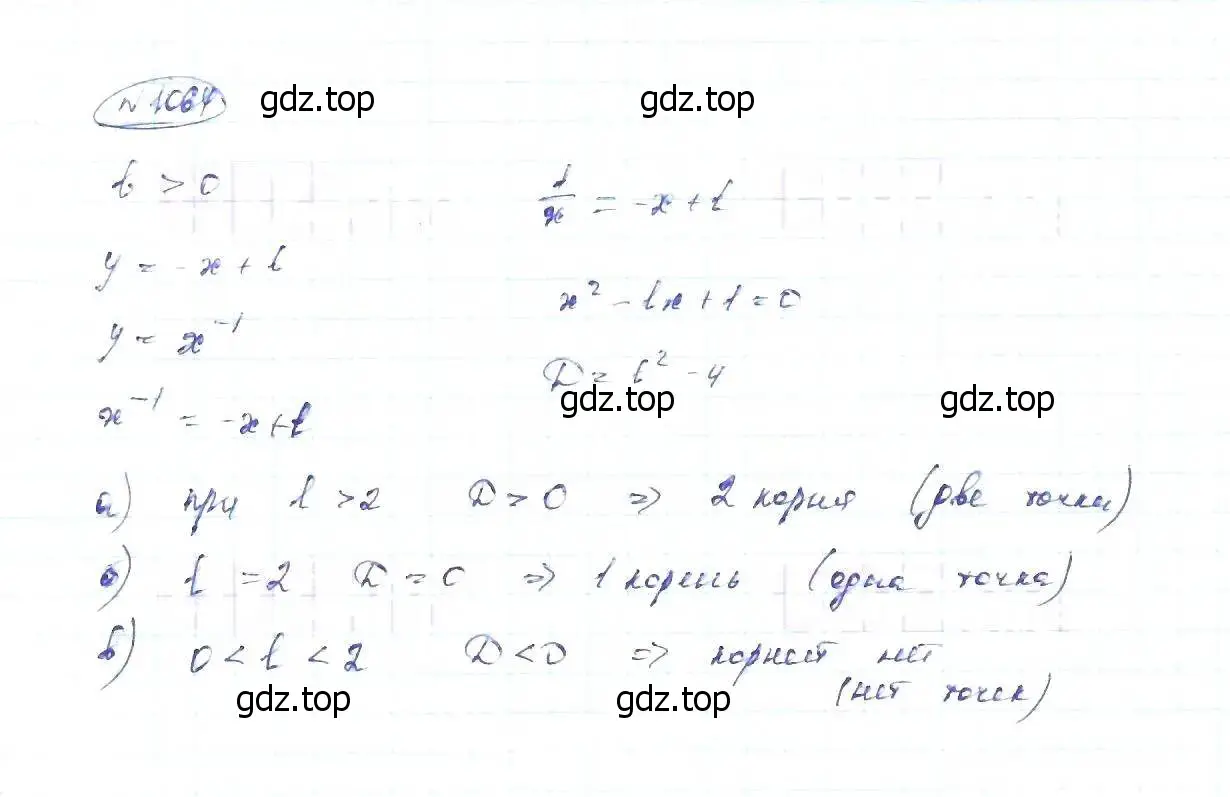 № 1064 gdz.top gdz.top
b > 0
y = -x + b
y = x^{-1}
x^{-1} = -x + b
1/x = -x + b
x² - bx + 1 = 0
D = b² - 4
gdz.top gdz.top
а) при b > 2 D > 0 => 2 корня (две точки)
б) b = 2 D = 0 => 1 корень (одна точка)
в) 0 < b < 2 D < 0 => корней нет
(нет точек)
gdz.top gdz.top